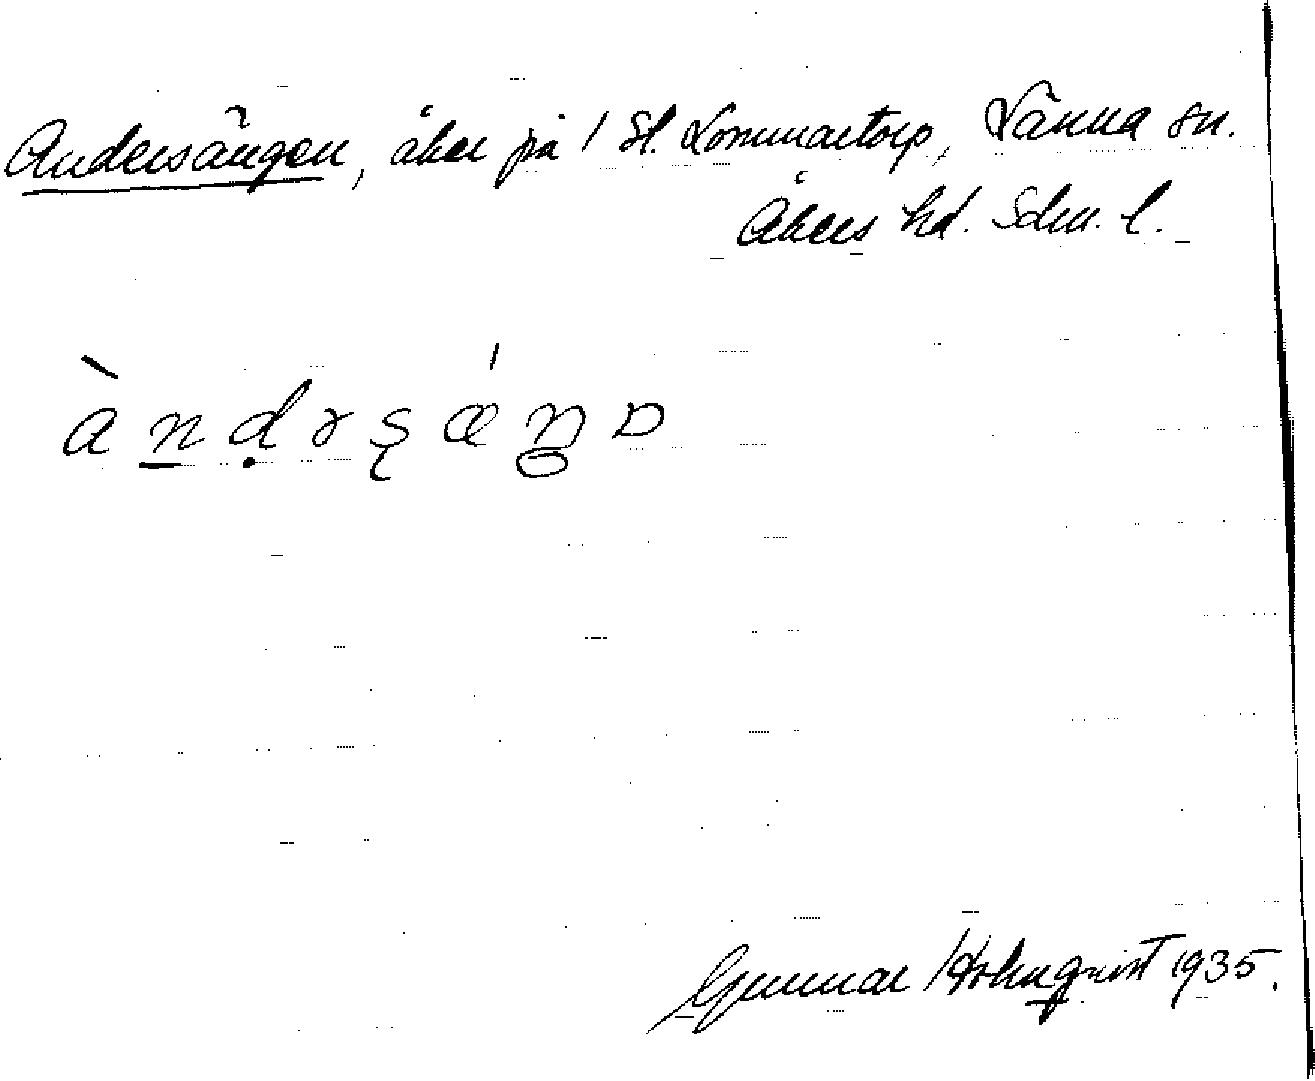 Andersängen, åker på 1 St. Lommartorp, Länna sn.
Åkers hd. Sdm. l.
Gunnar Holmqvist 1935.